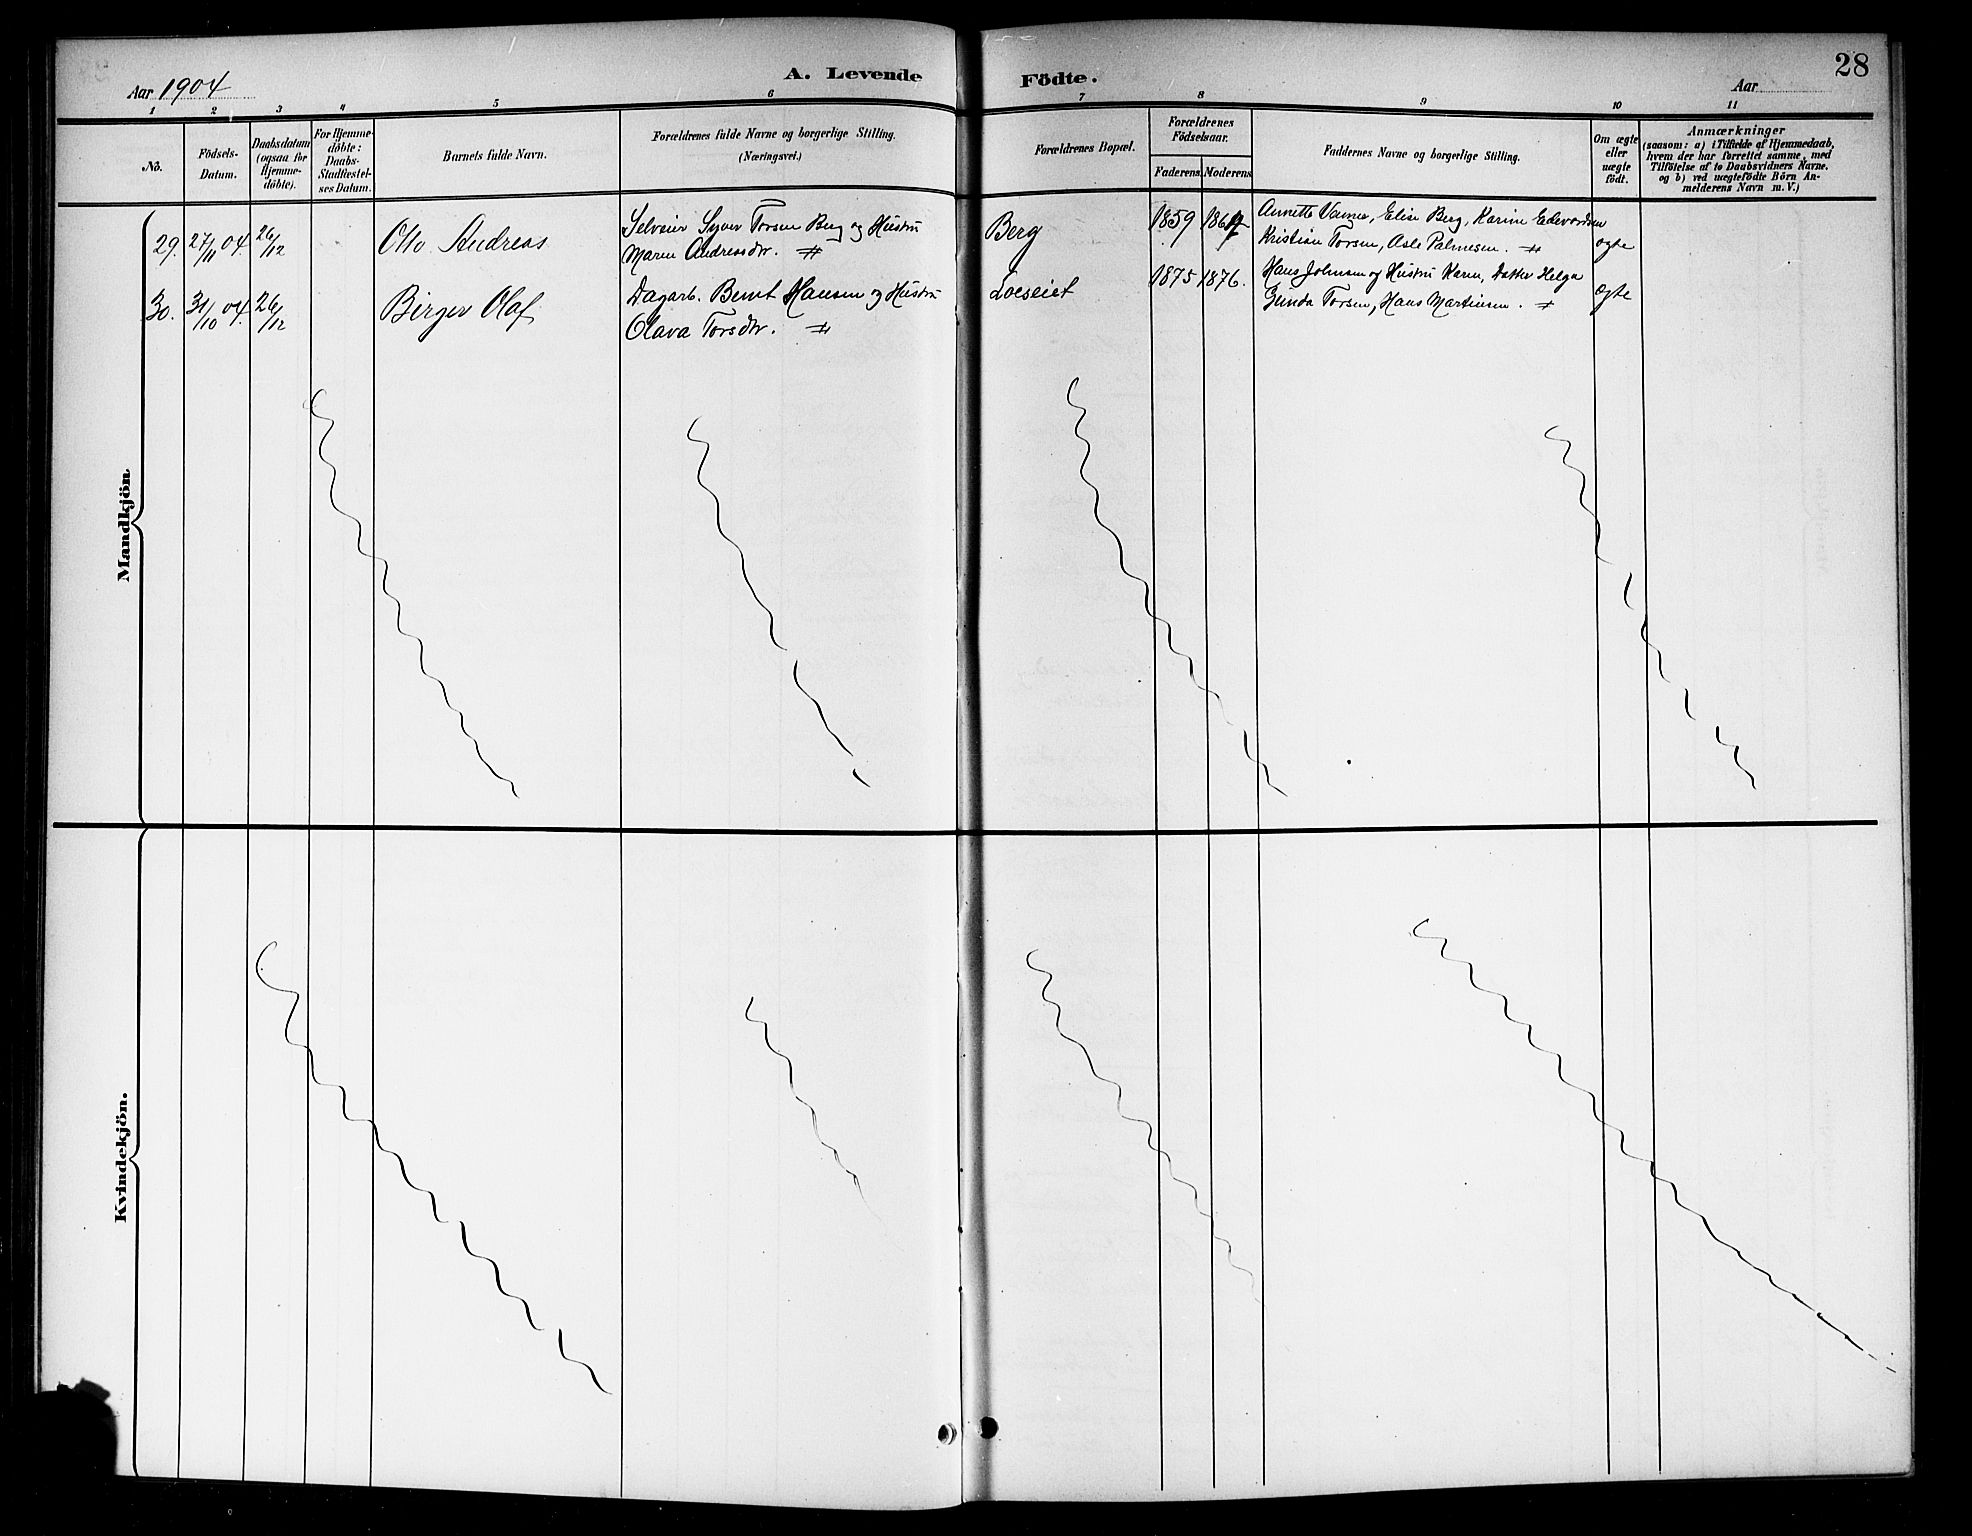 28
Aar 1904
A. Levende Födte.
Aar
1 2 3 4 5 6 7 8 9 10 11
No.
Födsels-Datum.
Daabsdatum (ogsaa for Hjemme-döbte).
For Hjemme-döbte: Daabs-Stadfæstel-ses Datum.
Barnets fulde Navn.
Forældrenes fulde Navne og borgerlige Stilling.
(Næringsvei.)
Forældrenes Bopæl.
Forældrenes Födselsaar.
Faderens. Moderens.
Faddernes Navne og borgerlige Stilling.
Om ægte eller uægte födt.
Anmærkninger
(saasom: a) i Tilfælde af Hjemmedaab,
hvem der har forrettet samme, med
Tilföielse af to Daabsvidners Navne.
og b) ved uægtefödte Börn An-
melderens Navn m. V.)
Mandkjön
29. 27/11 04. 26/12 Otto Andreas Selveier Syver Torsen Berg og Hustru Berg 1859 Annette Elise Berg, Karine
Maren Andreasdtr. Kristian Torsen, Asle Palmesen. ægte
30. 31/10 04. 26/12 Birger Olaf Dagarb. Bernt Hansen og Hustru Loeseiet 1875 1876. Hans Johnsen og Hustru Karen, Datter Helga
Olava Torsdtr. Gunda Torsen, Hans Martinsen. ægte
Kvindekjön.